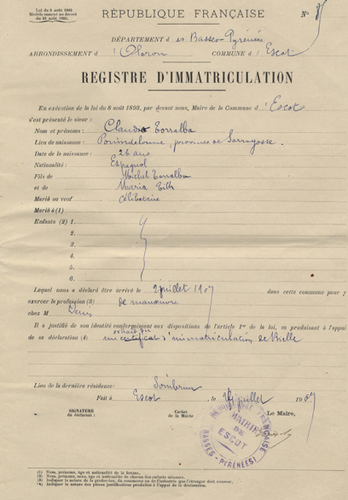 Loi du 8 août 1893
RÉPUBLIQUE FRANÇAISE
N° 
DÉPARTEMENT d es Basses-Pyrénées
ARRONDISSEMENT d' Oloron COMMUNE d' Escot
REGISTRE D'IMMATRICULATION
En exécution de la loi du 8 août 1893, par devant nous, Maire de la Commune d' Escot
s'est présenté le sieur :
Nom et prénoms : Claudio Torralba
Lieu de naissance : province de Sarragosse.
Date de la naissance : 26 ans
Nationalité : Espagnol
Fils de Michel Torralba
et de Maria
Marié ou veuf Célibataire
Marié à (1)
Enfants (2) 1.
2.
3.
4.
5.
6.
Lequel nous a déclaré être arrivé le 2 juillet 1907 dans cette commune pour y
exercer la profession (3) de manœuvre
M
Il a justifié de son identité conformément aux dispositions de l'article 1er de la loi, en produisant à l'appui
de sa déclaration (4) certificat d'immatriculation de Bielle
Lieu de la dernière résidence : Sombrun
Fait à Escot le juillet 1907
SIGNATURE
du déclarant :
Cachet
de la Mairie
Le Maire,
MAIRIE
DE
ESCOT
BASSES-PYRÉNÉES
(1) Nom, prénoms, âge et nationalité de la femme.
(2) Nom, prénoms, âge et nationalité de chacun des enfants mineurs.
(3) Indiquer la nature de la profession, du commerce ou de l'industrie que l'étranger doit exercer.
(4) Indiquer la nature des pièces justificatives produites à l'appui de la déclaration.